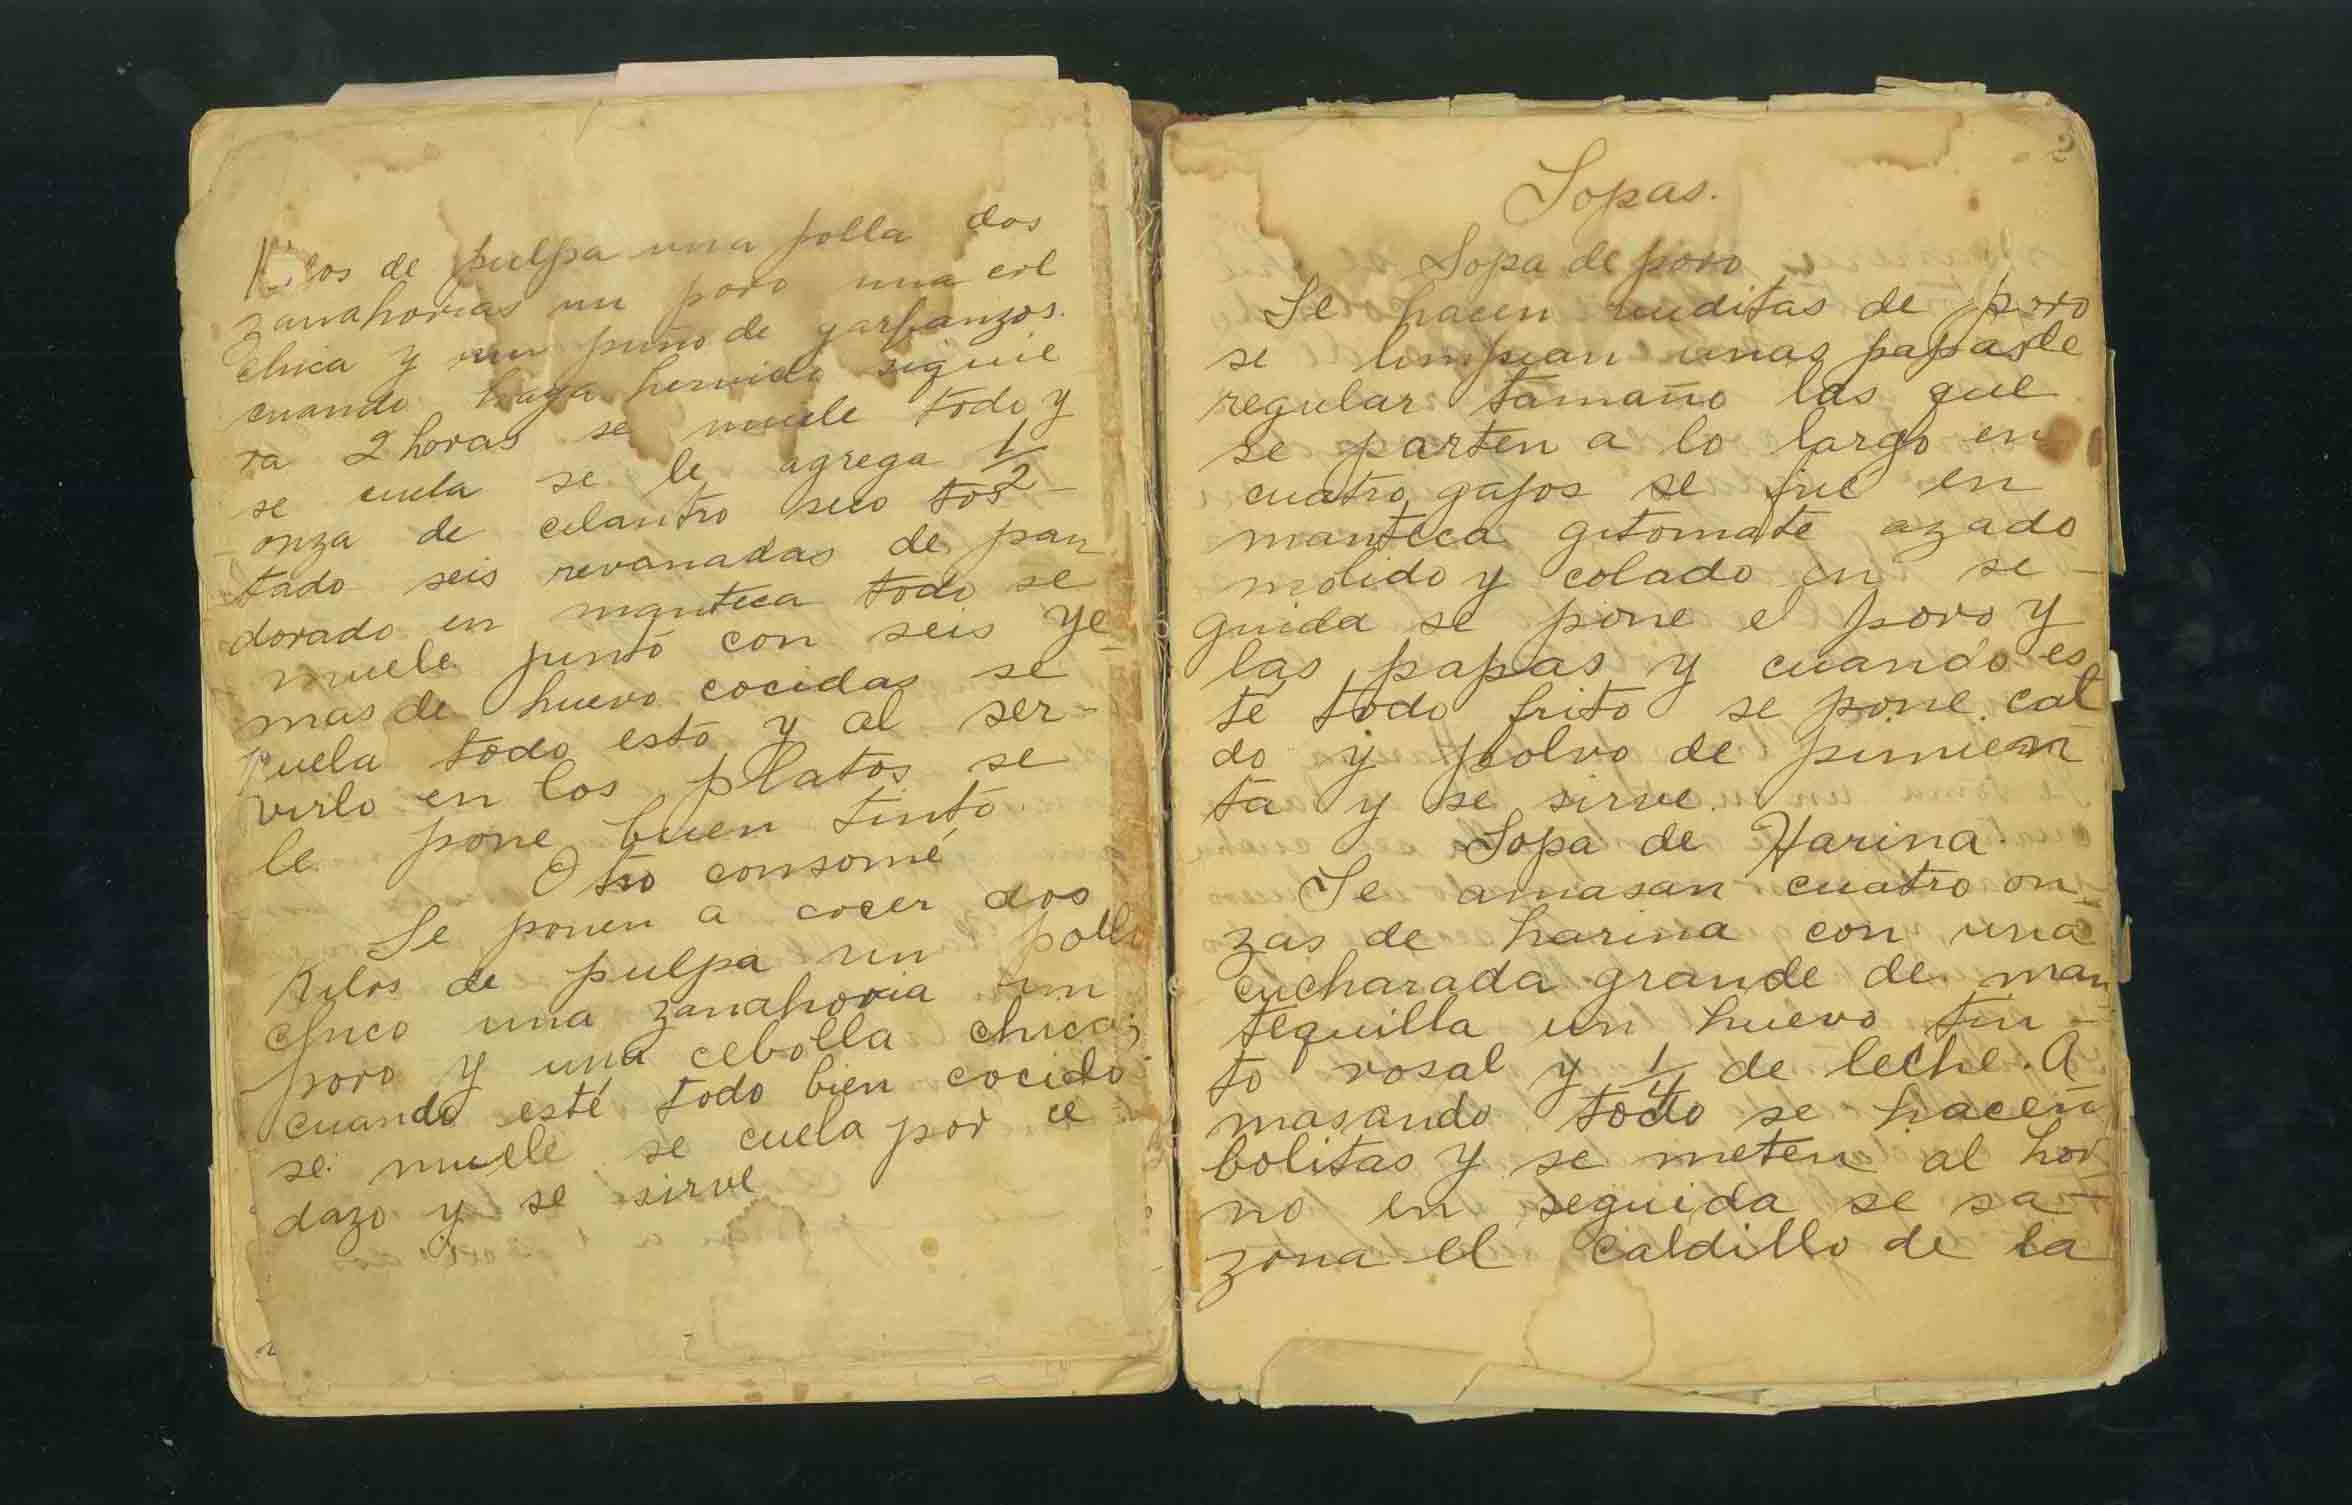 Kilos de pulpa una polla dos
zanahorias un poro una col
chica y un puño de garbanzos.
cuando haya hervido siquie
ra 2 horas se muele todo y
se cuela se le agrega 1/2
onza de cilantro seco tos-
tado seis revanadas de pan
dorado en manteca todo se
muele junto con seis ye-
mas de huevo cocidas se
cuela todo esto y al ser-
virlo en los platos se
le pone buen tinto.
Otro consomé
Se ponen a cocer dos
Kilos de pulpa un pollo
chico una zanahoria un
poro y una cebolla chica;
cuando esté todo bien cocido
se muele se cuela por ce
dazo y se sirve
2
Sopas.
Sopa de poro
Se hacen rueditas de poro
se limpian unas papas de
regular tamaño las que
se parten a lo largo en
cuatro gajos se frie en
manteca gitomate azado
molido y colado en se-
guida se pone el poro y
las papas y cuando es
té todo frito se pone cal
do y polvo de pimien
ta y se sirve.
Sopa de Harina.
Se amasan cuatro on-
zas de harina con una
cucharada grande de man-
tequilla un huevo tin-
to rosal y 1/4 de leche. A
masando todo se hacen
bolitas y se meten al hor-
no en seguida se sa-
zona el caldillo de la